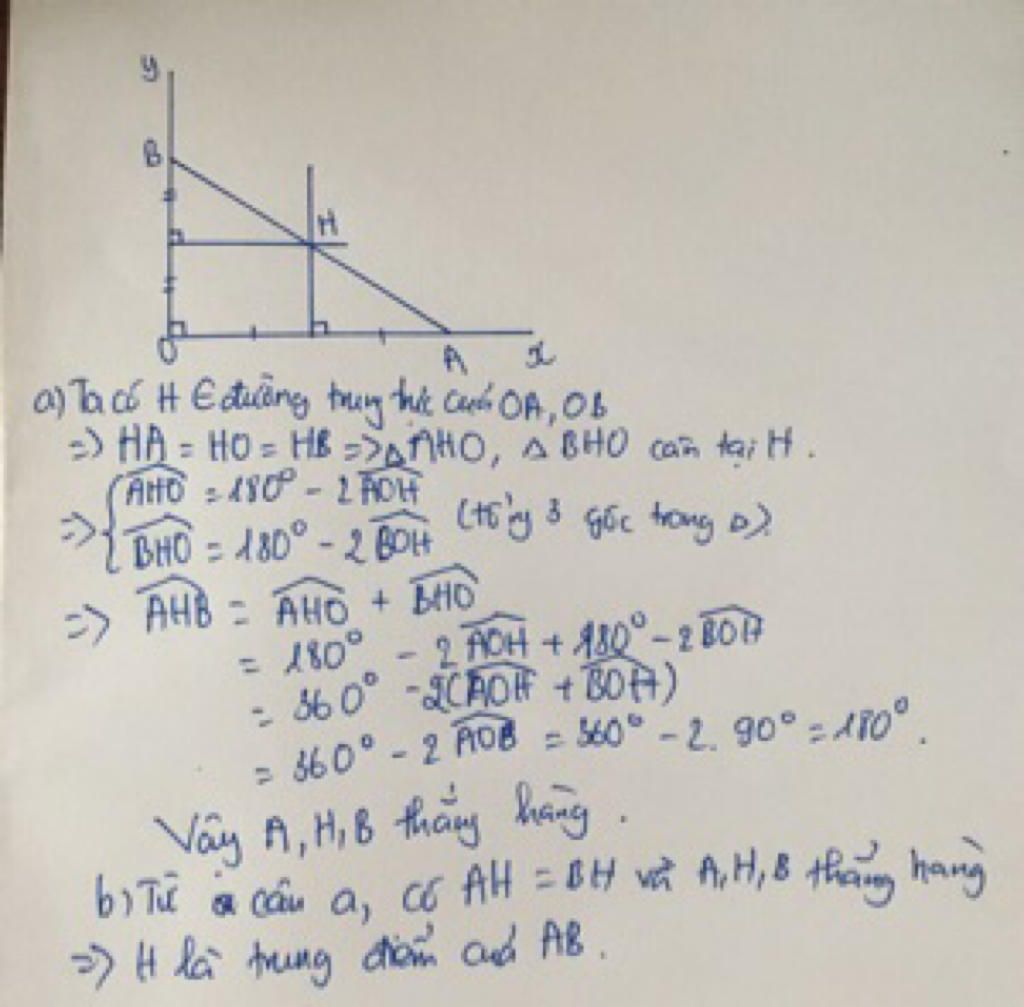 y
B
H
O
A
x
a) Ta có H ∈ đường trung trực của OA, OB
=> HA = HO = HB => △AHO, △BHO cân tại H.
=> { \widehat{AHO} = 180° - 2\widehat{AOH}
\widehat{BHO} = 180° - 2\widehat{BOH} (tổng 3 góc trong △)
=> \widehat{AHB} = \widehat{AHO} + \widehat{BHO}
= 180° - 2\widehat{AOH} + 180° - 2\widehat{BOH}
= 360° - 2(\widehat{AOH} + \widehat{BOH})
= 360° - 2\widehat{AOB} = 360° - 2. 90° = 180°.
Vậy A, H, B thẳng hàng.
b) Từ câu a, có AH = BH và A, H, B thẳng hàng
=> H là trung điểm của AB.